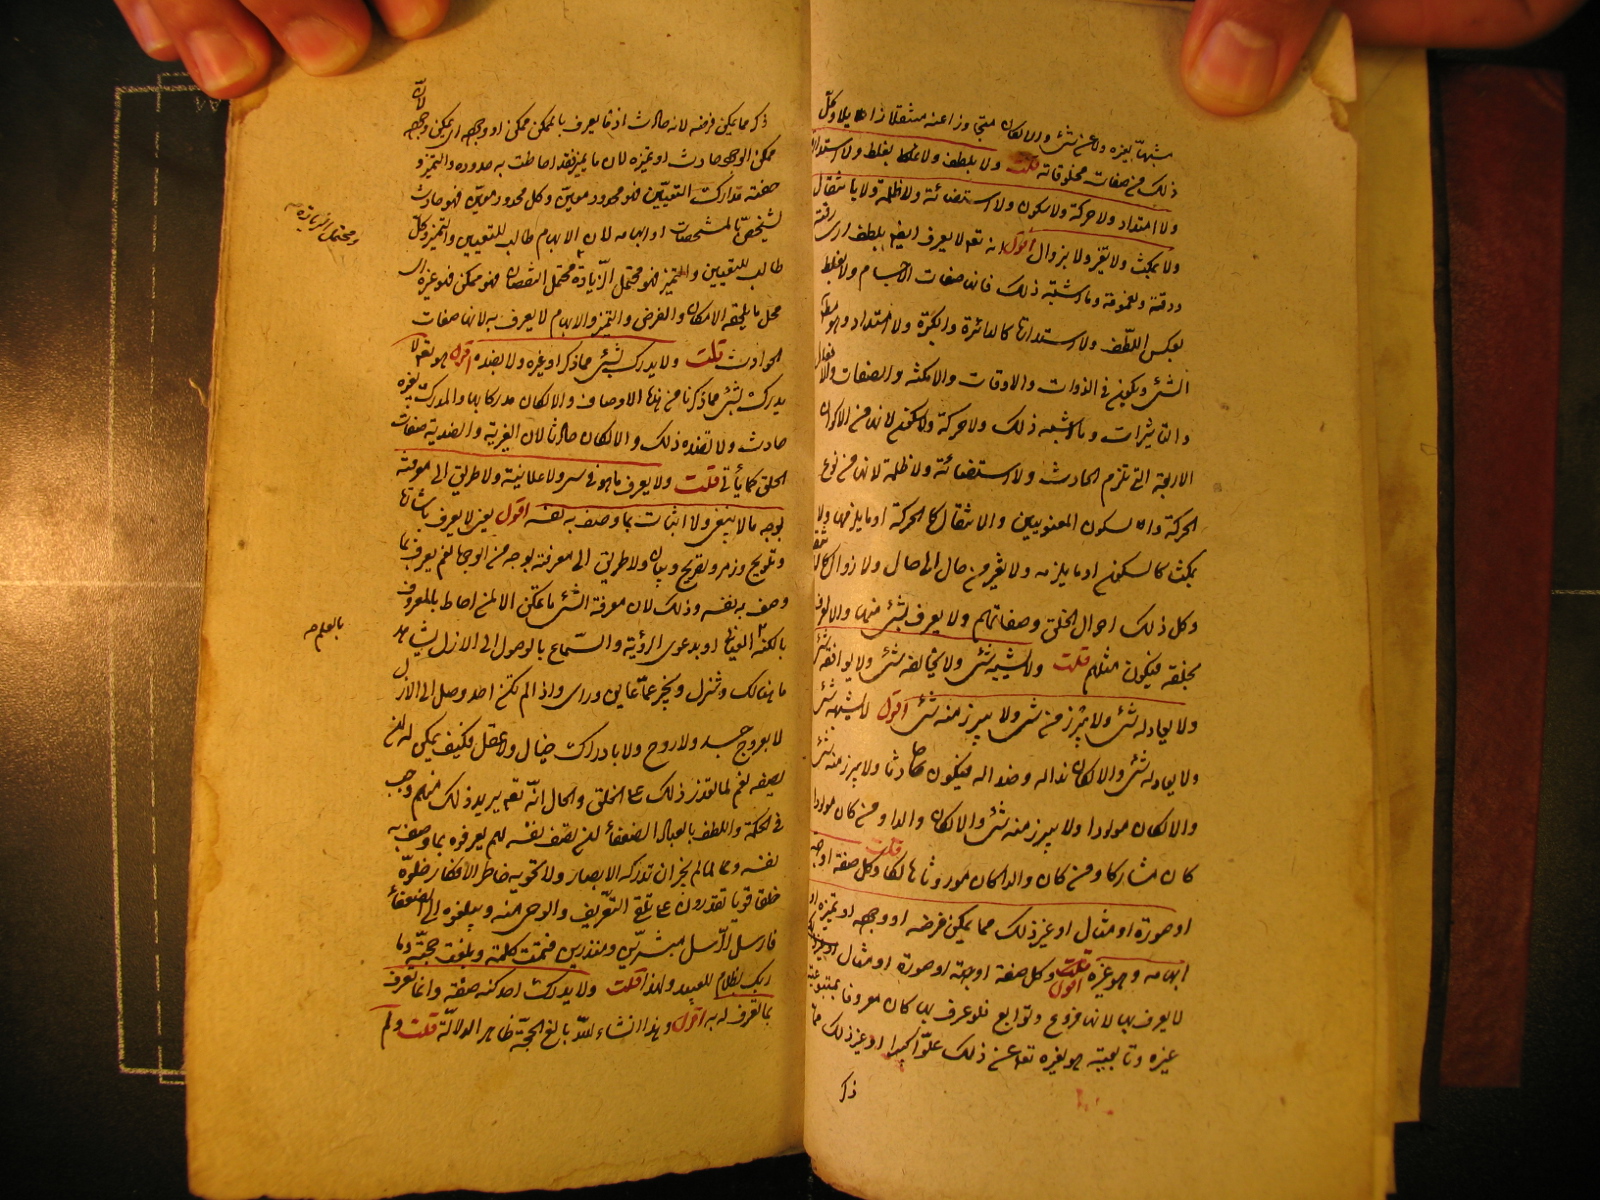 مشبها بغيره ولا عن شئ والا لكان متجزءا عنه مستقلا زايلا وكل
ذلك من صفات مخلوقاته قلت ولا بلطف ولا غلظ ولا استدارة
ولا امتداد ولا حركة ولا سكون ولا استضائة ولا ظلمة ولا بانتقال
ولا بمكث ولا تغير ولا بزوال اقول انه تعالى لا يعرف ايضا بلطف اى رقة
ودقة وغموضة وما اشبه ذلك فانه صفات الاجسام ولا بغلظ
بعكس اللطف ولا استدارة كالدائرة والكرة ولا امتداد وهو
الشئ ويكون فى الذوات والاوقات والامكنة والصفات والافعال
والتاثيرات وما اشبه ذلك ولا حركة ولا سكون لانه من الاكوان
الاربعة التى تلزم الحادث ولا استضائة ولا ظلمة لانه من نوع
الحركة والسكون المعنويين والانتقال كالحركة او ما يلزمها ولا
بمكث كالسكون او ما يلزمه ولا تغير من حال الى حال ولا زوال
وكل ذلك احوال الخلق وصفاتهم ولا يعرف بشئ منها والا لعرف
بخلقه فيكون مثلهم قلت ولا يشبهه شئ ولا يخالفه شئ ولا يوافقه شئ
ولا يعادله شئ ولا يبرز من شئ ولا يبرز منه شئ اقول لا يشبهه شئ
ولا يعادله شئ والا لكان ندا له وضدا له فيكون حادثا ولا يبرز منه شئ
والا لكان مولودا ولا يبرز منه شئ والا لكان والدا ومن كان مولودا
كان مشاركا ومن كان والدا كان موروثا هالكا قلت وكل صفة او جهة
او صورة او مثال او غير ذلك مما يمكن فرضه او وجهه او تميزه او
ابهامه وهو غيره قلت اقول وكل صفة او جهة او صورة او مثال او غير ذلك
لا يعرف بها لانه فروع وتوابع فلو عرف بها كان معروفا بمتبوعية
غيره وتابعيته هو لغيره تعالى عن ذلك علوا كبيرا او غير ذلك مما
ذكر
ذكر مما يمكن فرضه لانه حادث اذ لا يعرف بالممكن ممكن او وجهه اى يمكن وجهه
لان
ممكن الوجه حادث او تميزه لان ما يميز فقد احاطت به حدوده والتميز و
حفته مدارك التعيين فهو محدود معين وكل محدود معين فهو حادث
لشخص بالمشخصات او ابهامه لان الابهام طالب للتعيين والتميز وكل
طالب للتعيين والتميز فهو محتمل الزيادة محتمل النقصان فهو ممكن فهو غيره اى
ومحتمل الزيادة صح
محل ما يلحقه الامكان والفرض والتميز والابهام لا يعرف به لانه صفات
الحوادث قلت ولا يدرك بشئ مما ذكر او غيره ولا بضده اقول هو تعالى لا
يدرك بشئ مما ذكرنا من هذا الاوصاف والا لكان مدركا بها والمدرك بغيره
حادث ولا بضده ذلك والا لكان حادثا لان الغيرية والضدية صفات
الخلق كما يأتى قلت ولا يعرف ما هو فى سر ولا علانية ولا طريق الى معرفته
بوجه ما لا بنفى ولا اثبات بما وصف به نفسه اقول يعنى لا يعرف باشارة
وتلويح ورمز وتصريح وبيان ولا طريق الى معرفته بوجه من الوجوه نعم يعرف بما
وصف به نفسه وذلك لان معرفة الشئ ما تمكن الا لمن احاط بالمعروف
بالعلم صح
بالكنه او بدعوى الرؤية والسماع بالوصول الى الازل يشاهد
ما هنالك وتنزل ويخبر عما عاين وراى واذا لم تكن احد وصل الى الازل
لا بعروج جسد ولا روح ولا بادراك خيال ولا عقل فكيف يمكن له ان
يصفه نعم لما تعذر ذلك على الخلق والحال انه تعالى يريد ذلك منهم وجب
فى الحكمة واللطف بالعباد الضعفاء ان يصف نفسه لهم ليعرفوه بما وصف به
نفسه ولما لم يجز ان تدركه الابصار ولا تحويه خواطر الافكار خلق
خلقا قويا يقدرون على تلقى التعريف والوحى منه ويبلغوه الى الضعفاء
فارسل الرسل مبشرين ومنذرين فتمت كلمته وبلغت حجته وما
ربك بظلام للعبيد ولهذا قلت ولا يدرك احد كنه صفته وانما يعرف
بما تعرف له به اقول وهذا انشاء الله بالغ الحجة ظاهر الدلالة قلت ولم